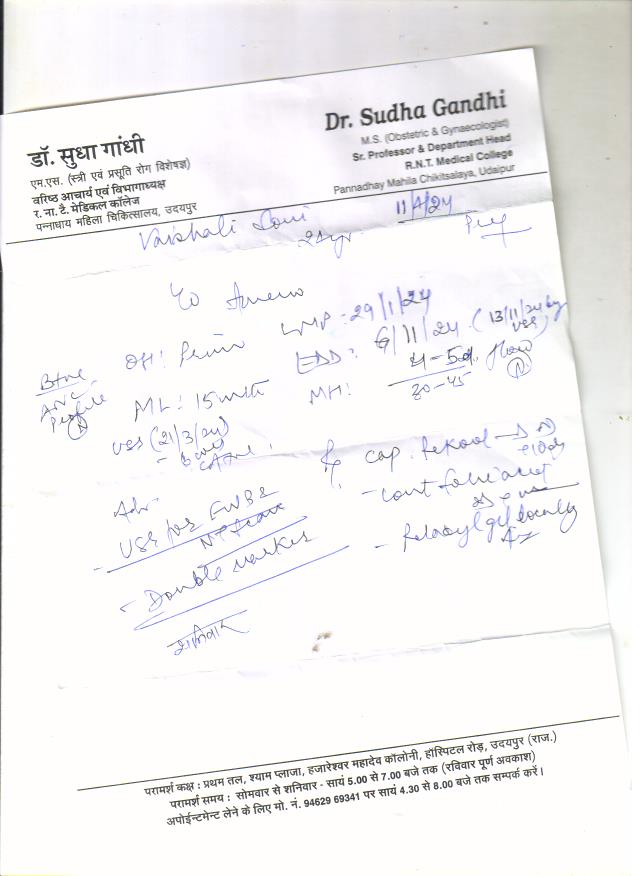 डॉ. सुधा गांधी
एम.एस. (स्त्री एवं प्रसूति रोग विशेषज्ञ)
वरिष्ठ आचार्य एवं विभागाध्यक्ष
र. ना. टै. मेडिकल कॉलेज
पन्नाधाय महिला चिकित्सालय, उदयपुर
Dr. Sudha Gandhi
M.S. (Obstetric & Gynaecologist)
Sr. Professor & Department Head
R.N.T. Medical College
Pannadhay Mahila Chikitsalaya, Udaipur
Vaishali Soni
11/4/24
LMP - 29/1/24
OH: Primi
EDD: 6/11/24 (13/11/24 by
USG)
B+ve
ANC
Profile
(N)
ML: 15 mth
MH: 4-5d flow
30-45 (N)
USG (21/3/24)
Adv
- USG for FWB &
NT scan
- Double marker
शनिवार
Rx
- Relaxyl gel locally
परामर्श कक्ष : प्रथम तल, श्याम प्लाजा, हजारेश्वर महादेव कॉलोनी, हॉस्पिटल रोड़, उदयपुर (राज.)
परामर्श समय : सोमवार से शनिवार - सायं 5.00 से 7.00 बजे तक (रविवार पूर्ण अवकाश)
अपोईन्टमेन्ट लेने के लिए मो. नं. 94629 69341 पर सायं 4.30 से 8.00 बजे तक सम्पर्क करें।